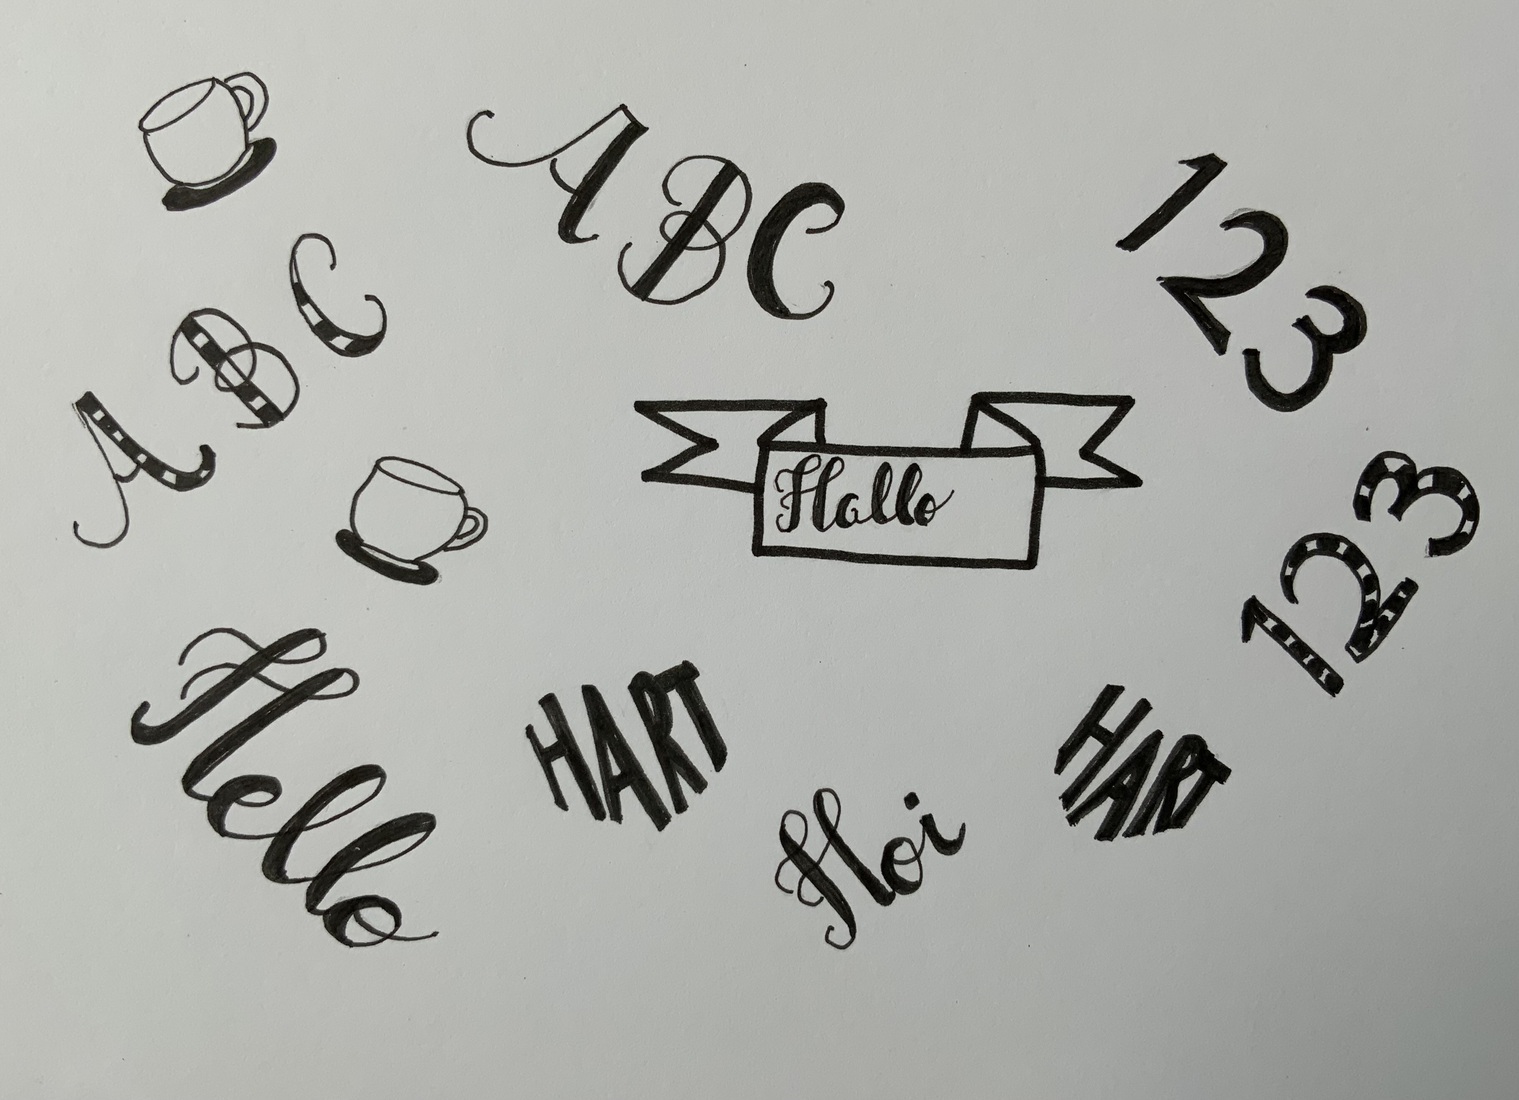 ABC
123
ABC
Hallo
123
Hello
HART
HART
Hoi